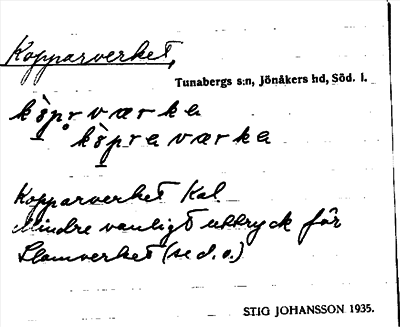 Kopparverket,
Tunabergs s:n, Jönåkers hd, Söd. l.
kopr værka
kopra værka
Kopparverket Kal.
Mindre vanligt uttryck för
Slamverket (se d. o.)
STIG JOHANSSON 1935.